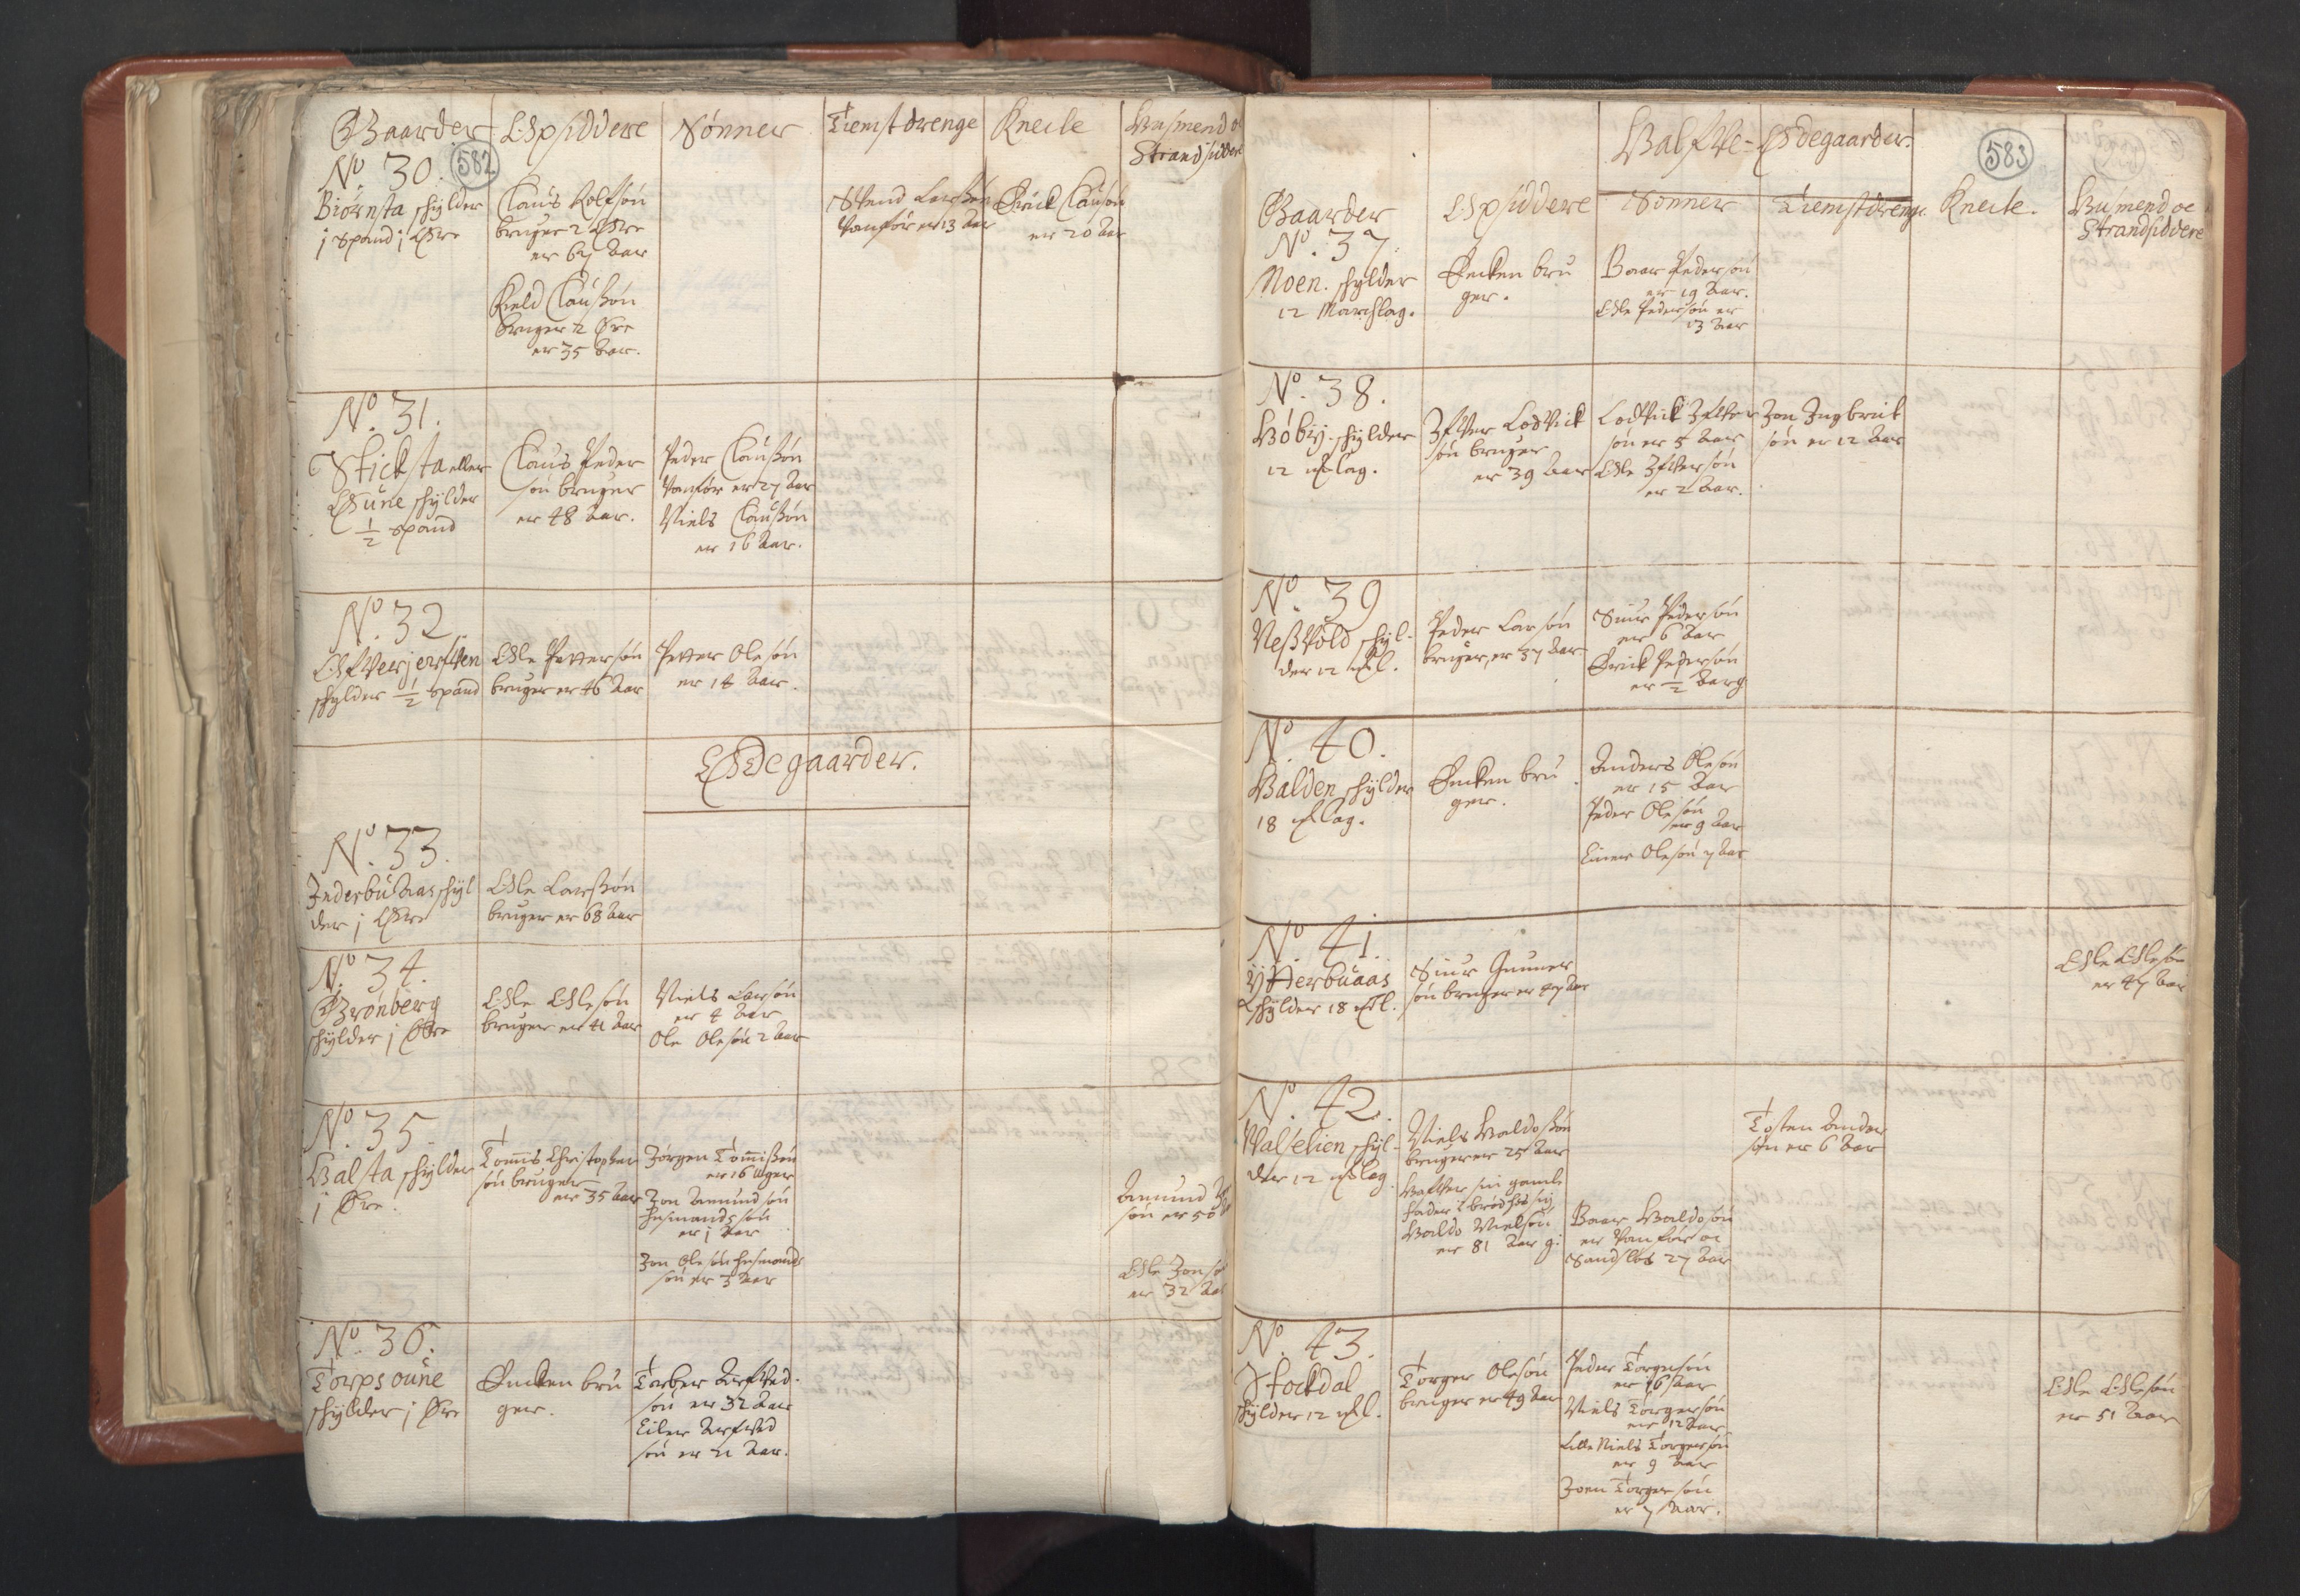 Gaarder Opsiddere Sønner Tienistdrenge Knecte Husmend oc
Strandsiddere
582
No. 30.
Biørnsta schylder
j Spand j Øre
Claus Rolfsøn
bruger 2 Øre
er 67 Aar
Kield Claussøn
bruger 2 Øre
er 35 Aar.
Svend Larssøn
Vanför er 13 Aar
Erick Clausøn
er 20 Aar
No. 31.
Sticksta eller
Øune schylder
1/2 Spand
Claus Peder
søn bruger
er 48 Aar.
Peder Claussøn
Vanför er 27 Aar
Niels Claussøn
er 16 Aar.
No. 32
schylder 1/2 Spand
Ole Pettersøn
bruger er 46 Aar
Petter Olesøn
er 14 Aar.
Ødegaarder.
No. 33.
Inderbuaas schyl
der j Øre
Ole Larssøn
bruger er 68 Aar
No. 34.
Grønberg
schylder j Øre
Ole Olesøn
bruger er 41 Aar
Niels Larsøn
er 4 Aar
Ole Olesøn 2 Aar
No. 35.
Balsta schylder
j Øre.
Tomis Christopher
søn bruger
er 35 Aar
Jørgen Tomissøn
er 16 Uger
Jon Amundsøn
husmands søn
er j Aar
Jon Olesøn husmands
søn er 3 Aar
Amund
søn er 50
Ole Jonsø
er 32 Aar
No. 36.
Torpsoune
schylder j Øre
Encken bru
ger.
Torber Arfved
søn er 32 Aar
Eiler Arfved
søn er 21 Aar.
583
Halfve-Ødegaarder.
Gaarder Opsiddere Sønner Tienistdrenge Knecte. Husmend oc
Strandsiddere
No. 37.
Moen. schylder
12 Marchlag.
Encken bru
ger.
Baar Pedersøn
er 19 Aar.
Ole Pedersøn er
13 Aar
No. 38.
Høby schylder
12 Mlag.
Ifver Lodvick
søn bruger
er 39 Aar
Lodvick Ifver
søn er 5 Aar
Ole Ifversøn
er 2 Aar.
Jon Ingbrict
søn er 12 Aar
No. 39
Nessvold schyl-
der 12 Ml.
Peder Larsøn
bruger, er 37 Aar
Siur Pedersøn
er 6 Aar
Erick Pedersøn
er 1/2 Aar g
No. 40.
Balden schylder
18 Mlag.
Encken bru
ger.
Anders Olesøn
er 15 Aar
Peder Olesøn
er 9 Aar
Einer Olesøn 7 Aar
No. 41.
Ytterbuaas
schylder 18 Ml.
Siur Gunner
søn bruger er 47 Aar
Ole Olesøn
er 47 Aar
No. 42.
Valselien schyl-
der 12 Mlag
Niels Haldossøn
bruger er 25 Aar
Hafver sin gamle
fader i brød hos sig
Haldo Nielsøn
er 81 Aar g:
Baar Haldosøn
er Vanför oc
Sandsløs 27 Aar
Tosten Ander
søn er 6 Aar
No. 43.
Stockdal
schylder 12 Ml.
Torger Olesøn
bruger er 49 Aar
Peder Torgersøn
er 16 Aar
Niels Torgersøn
er 12 Aar
Lille Niels Torgersøn
er 9 Aar
Joen Torgersøn
er 7 Aar.
Ole Olesøn
er 51 Aar